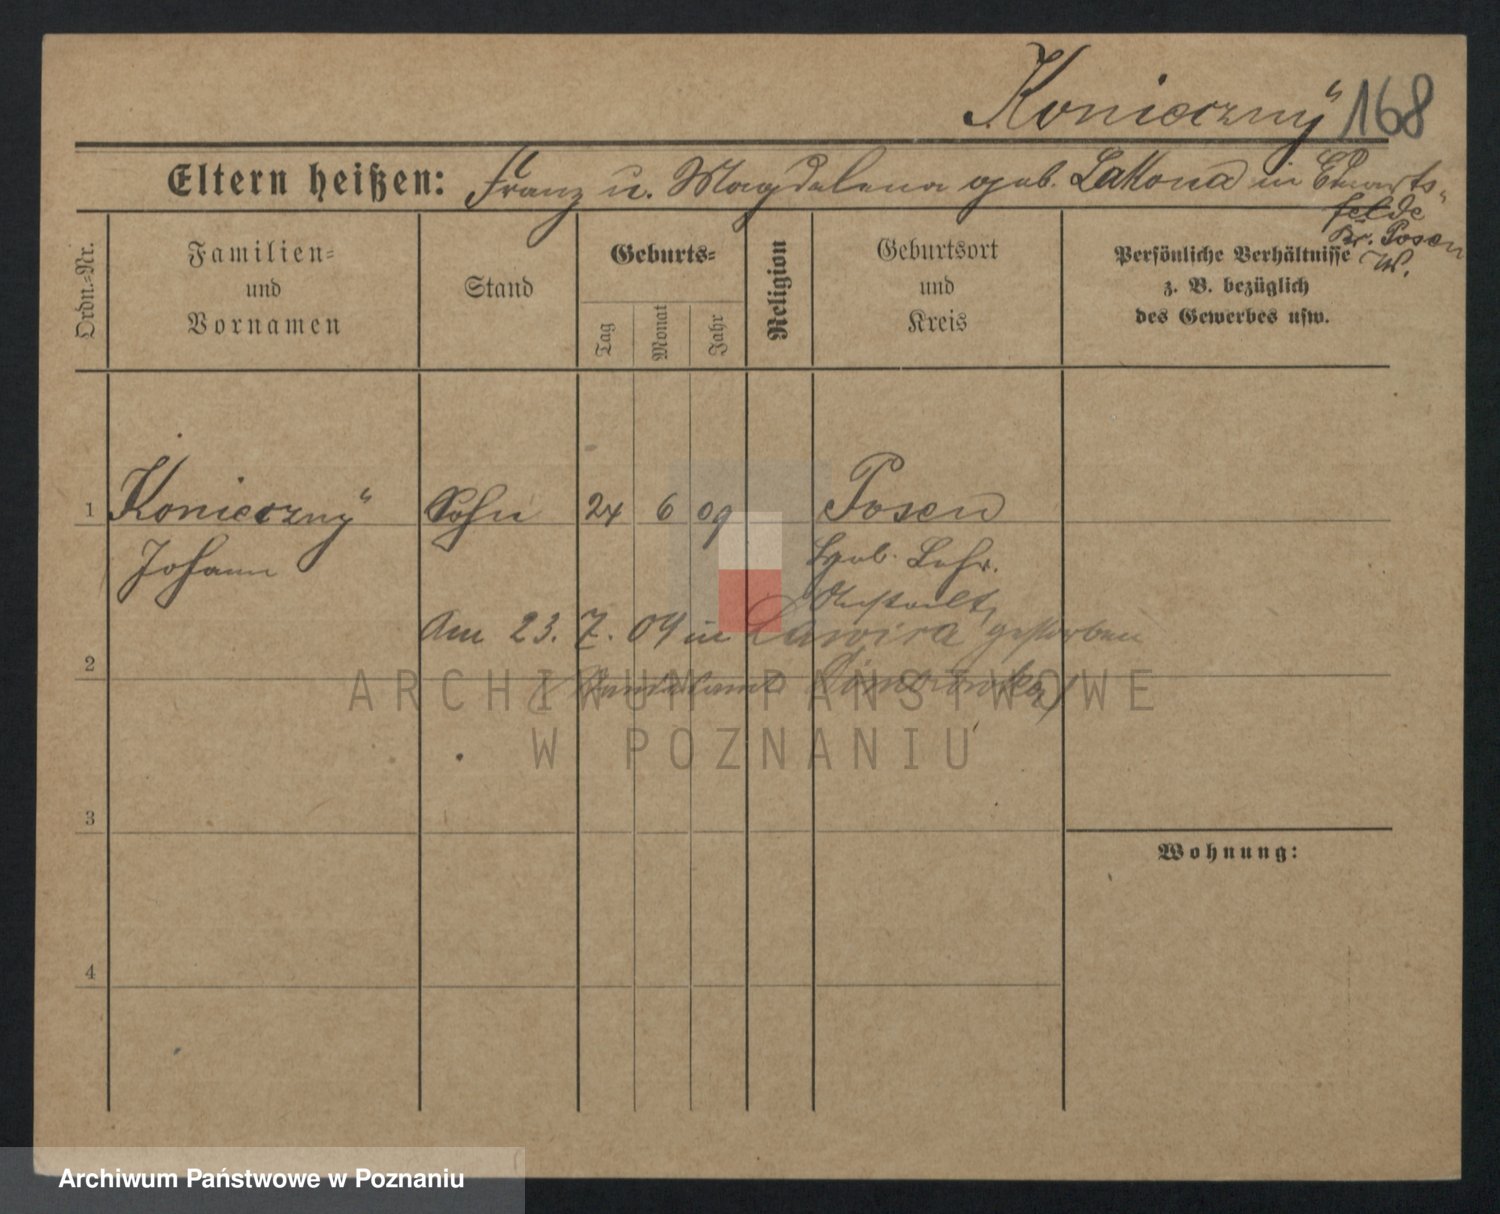 Konieczny 168
Eltern heißen: Franz u. Magdalena geb. Lakona in Edwarts-
felde
Kr. Posen
W.
Ordn.-Nr.
Familien-
und
Vornamen
Stand
Geburts-
Tag
Monat
Jahr
Religion
Geburtsort
und
Kreis
Persönliche Verhältnisse
z. B. bezüglich
des Gewerbes usw.
1 Konieczny Sohn 24 6 09 Posen
Johann
Hgeb. Lehr.
Anstalt,
Am 23. 7. 09 in Lawica gestorben
2
(Standesamt
ARCHIWUM PAŃSTWOWE
W POZNANIU
3
Wohnung:
4
Archiwum Państwowe w Poznaniu